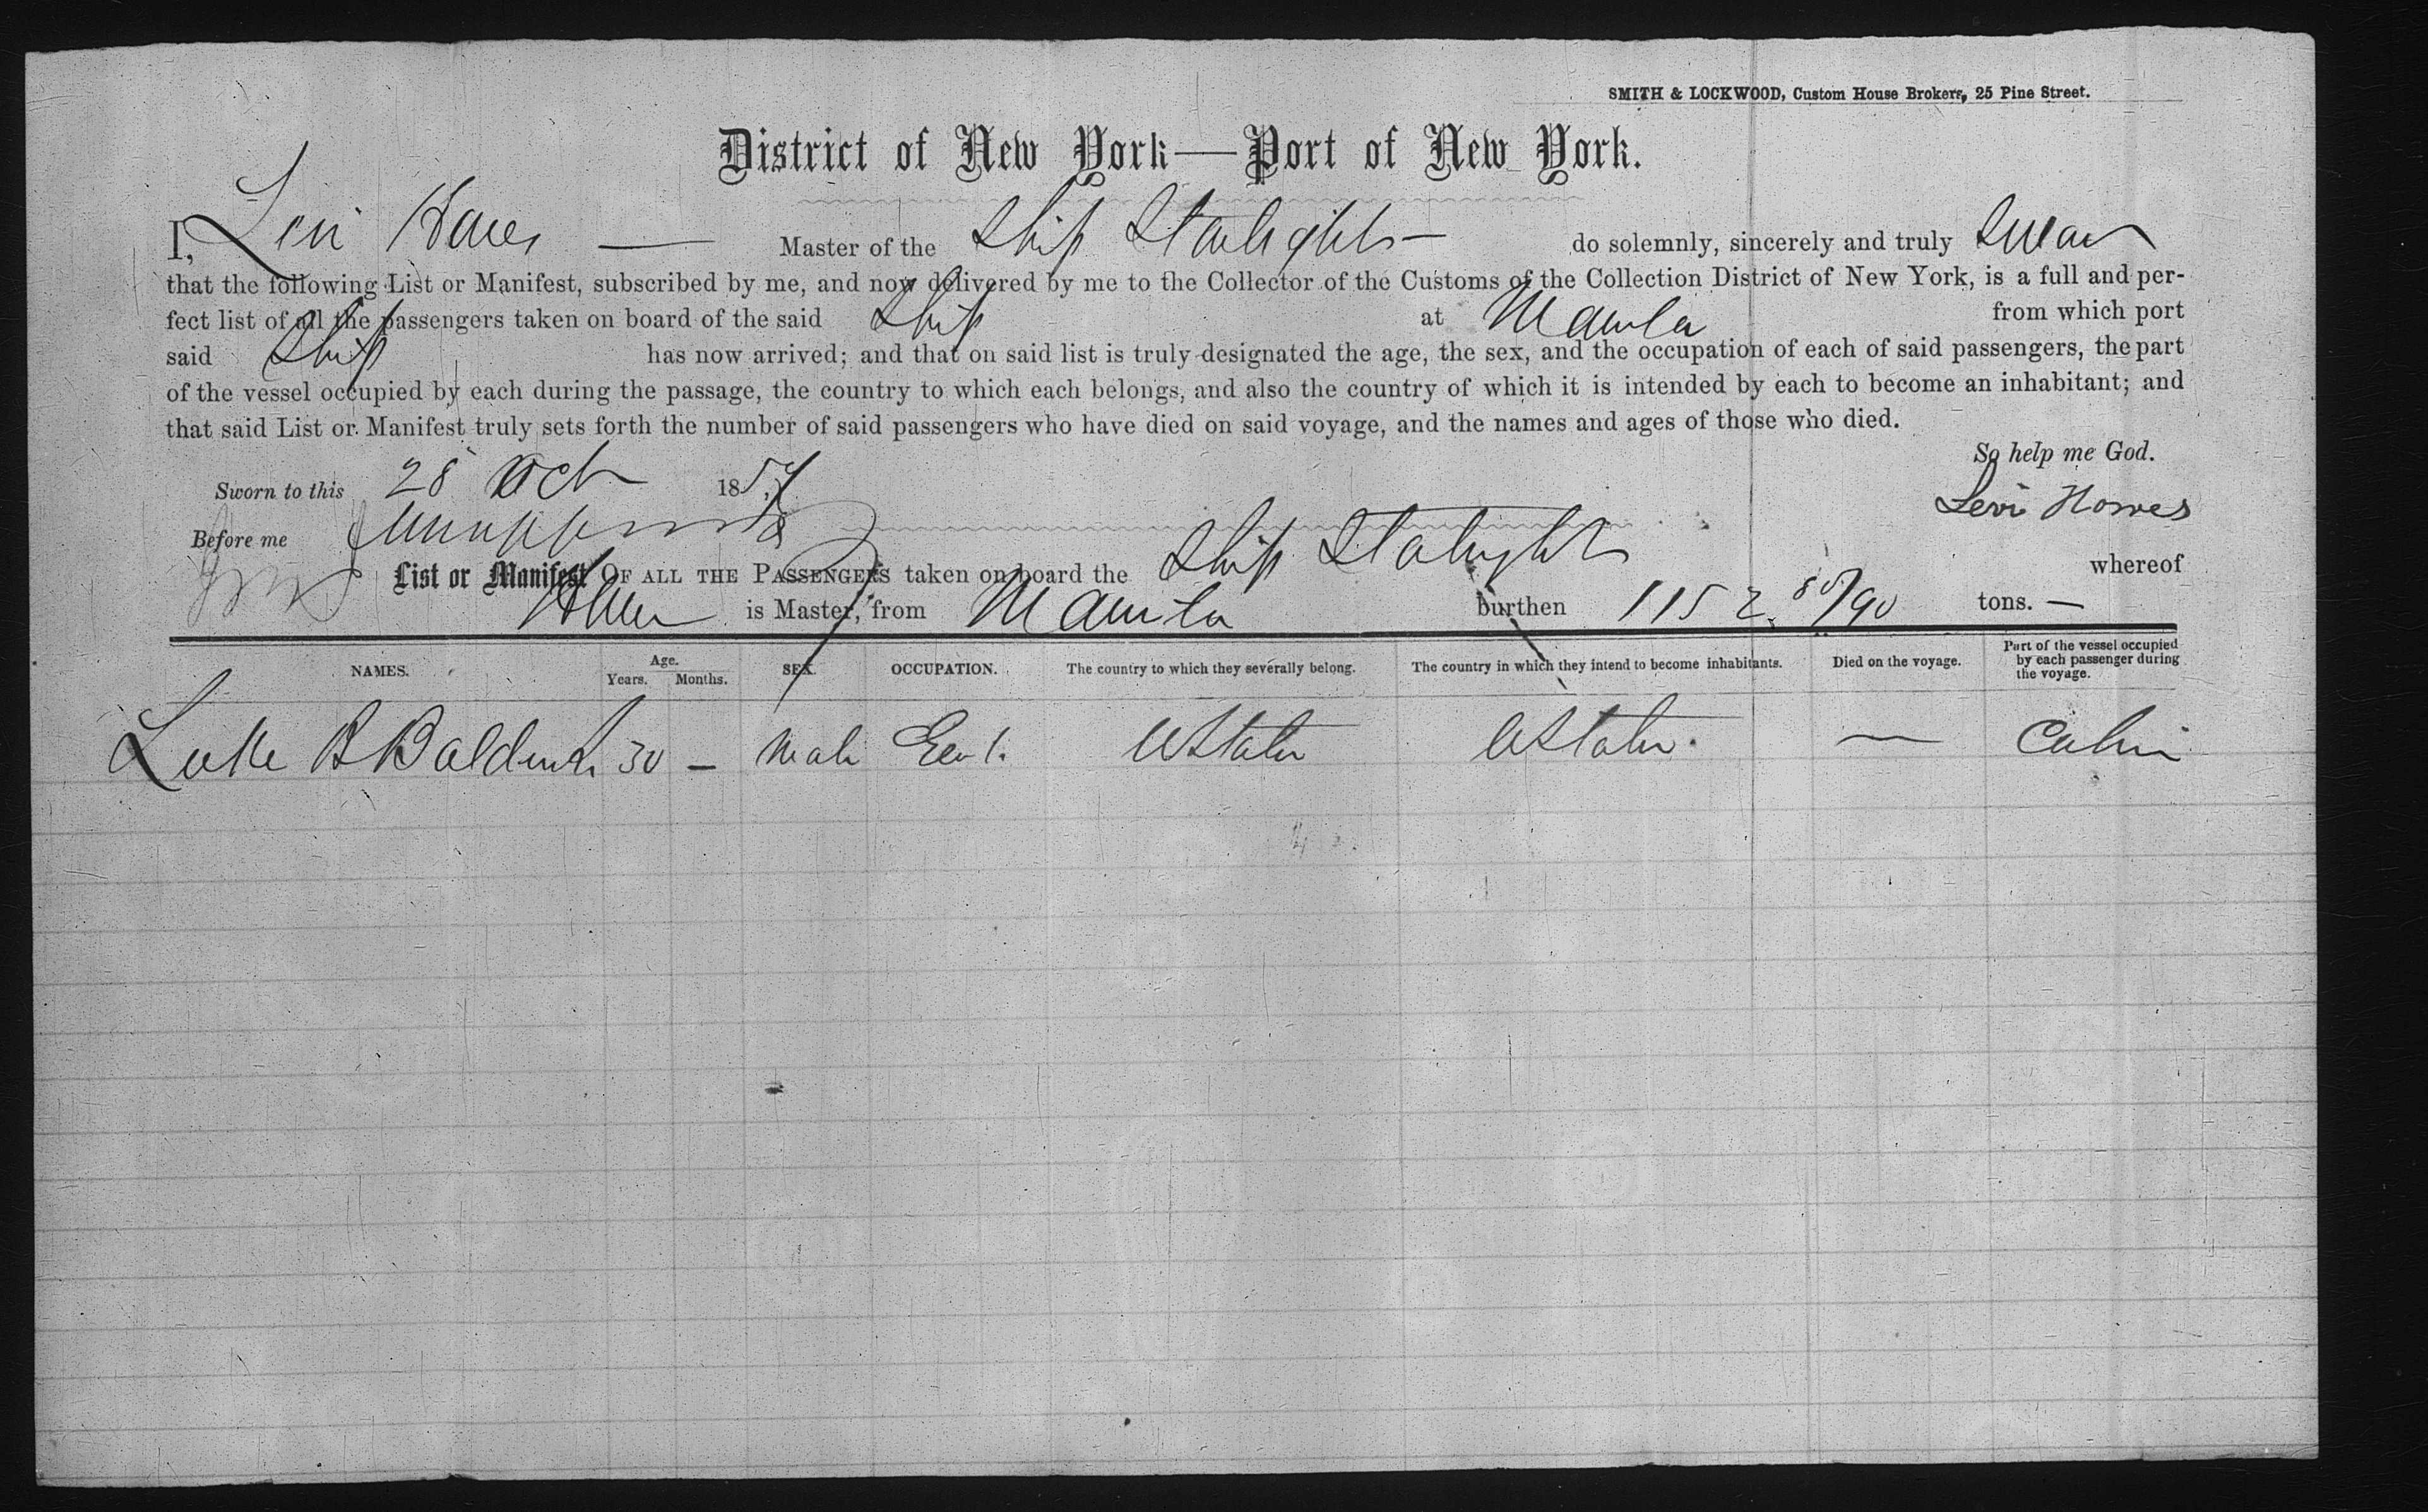 SMITH & LOCKWOOD, Custom House Brokers, 25 Pine Street.
District of New York—Port of New York.
I, Levi Howes — Master of the Ship Starlight — do solemnly, sincerely and truly Swear
that the following List or Manifest, subscribed by me, and now delivered by me to the Collector of the Customs of the Collection District of New York, is a full and per-
fect list of all the passengers taken on board of the said Ship at Manila from which port
said Ship has now arrived; and that on said list is truly designated the age, the sex, and the occupation of each of said passengers, the part
of the vessel occupied by each during the passage, the country to which each belongs, and also the country of which it is intended by each to become an inhabitant; and
that said List or Manifest truly sets forth the number of said passengers who have died on said voyage, and the names and ages of those who died.
So help me God.
Sworn to this 28 Oct 185
Levi Howes
Before me
List or Manifest OF ALL THE PASSENGERS taken on board the Ship Starlight whereof
Howes is Master, from Manila burthen 1152 80/90 tons. —
NAMES. Age. Years. Months. SEX. OCCUPATION. The country to which they severally belong. The country in which they intend to become inhabitants. Died on the voyage. Part of the vessel occupied by each passenger during the voyage.
Luke B Baldwin 30 — Male Gent. UStates UStates. — Cabin